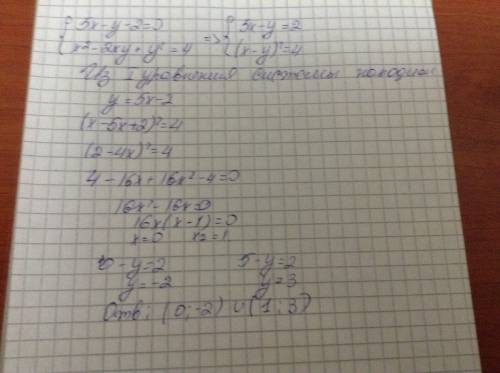 { 5x-y-2=0 => { 5x-y=2
{ x²-2xy+y²=4 { (x-y)²=4
Из I уравнения системы находим
y=5x-2
(x-5x+2)²=4
(2-4x)²=4
4-16x+16x²-4=0
16x²-16x=0
16x(x-1)=0
x=0 x₂=1
0-y=2 5-y=2
y=-2 y=3
Отв: (0;-2) и (1;3)